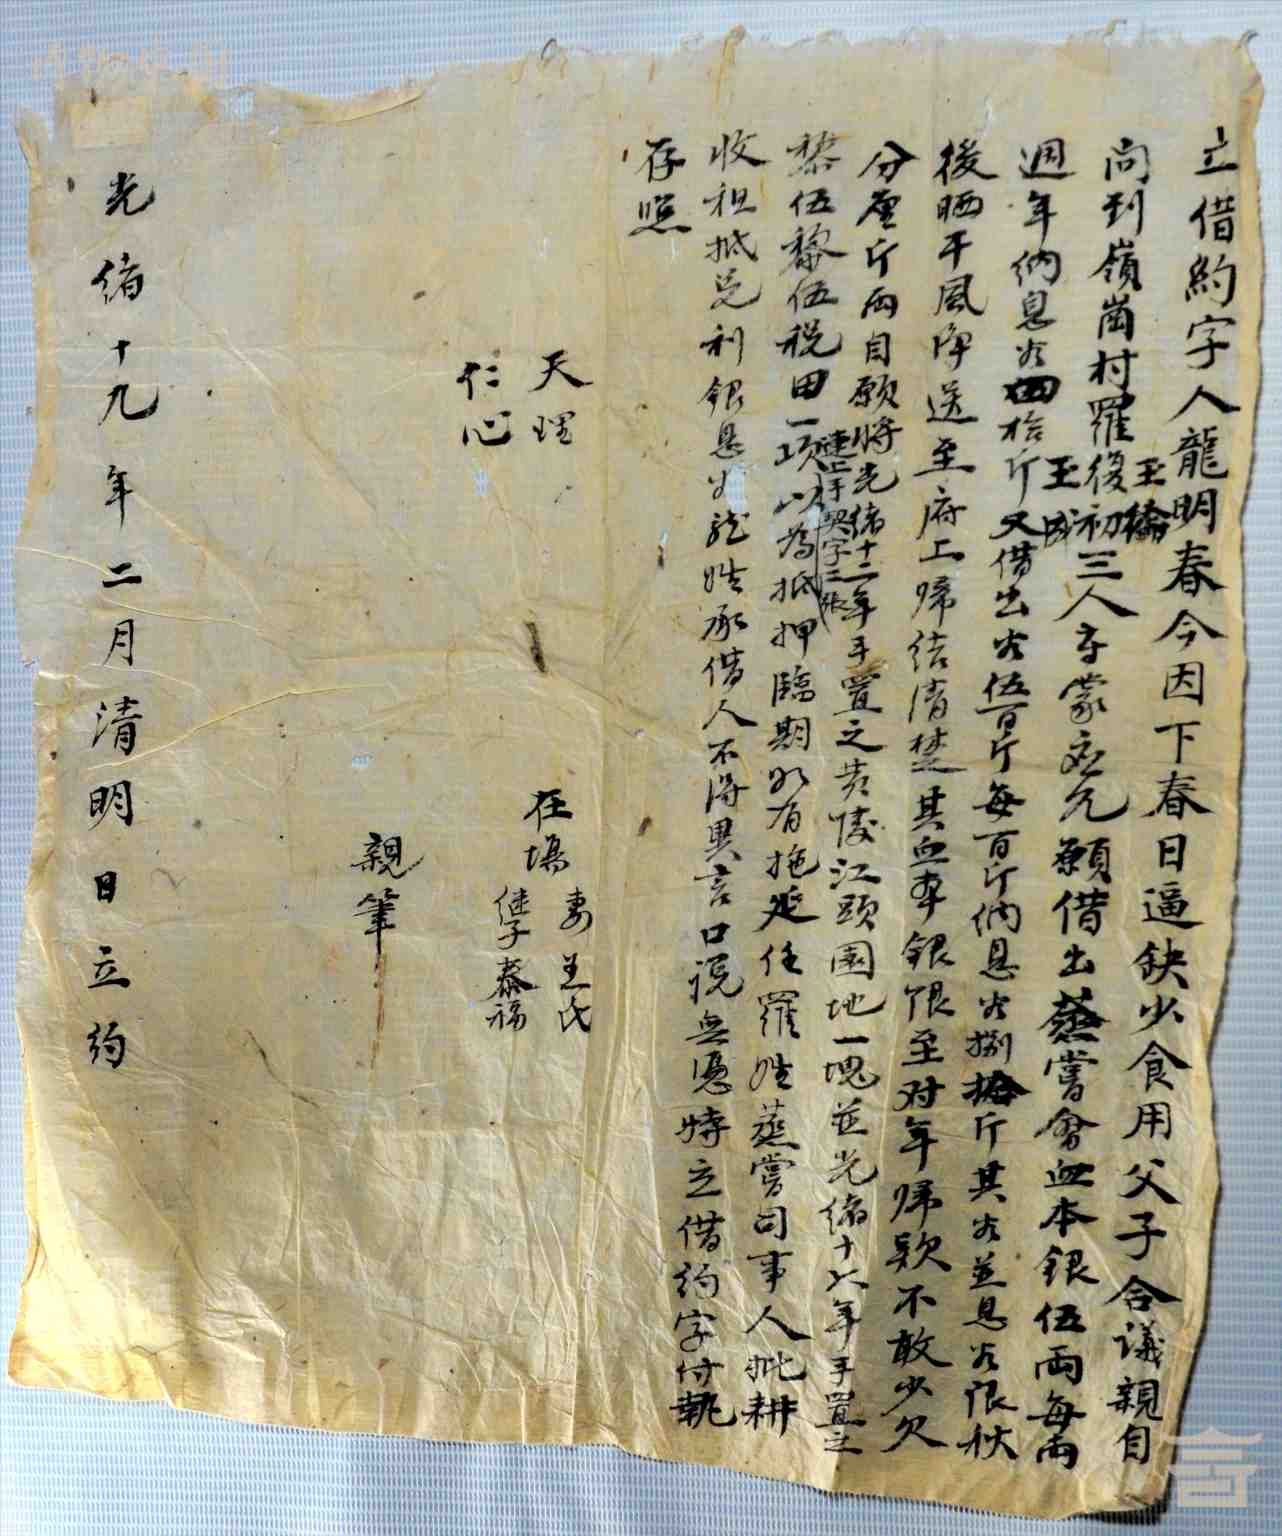 立借約字人龍明春今因下春日逼缺少食用父子合議親自
問到嶺崗村羅玉綸復初玉成三人手蒙應允願借出蒸嘗會血本銀伍兩每兩
週年納息谷四拾斤又借出谷伍百斤每百斤納息谷捌拾斤其谷並息谷限秋
後晒干風淨送至府上歸結清楚其血本銀限至对年歸款不敢少欠
分厘斤兩自願將光緒十二年手置之黃陵江頭園地一塊並光緒十六年手置之
黎伍黎伍稅田一項連上手契字三張以為抵押臨期如有拖延任羅姓蒸嘗司事人批耕
收租抵兌利銀息谷龍姓承借人不得異言口說無憑特立借約字付執
存照
天理
仁心
在塲
妻兰氏
继子泰福
親筆
光緒十九年二月清明日立約